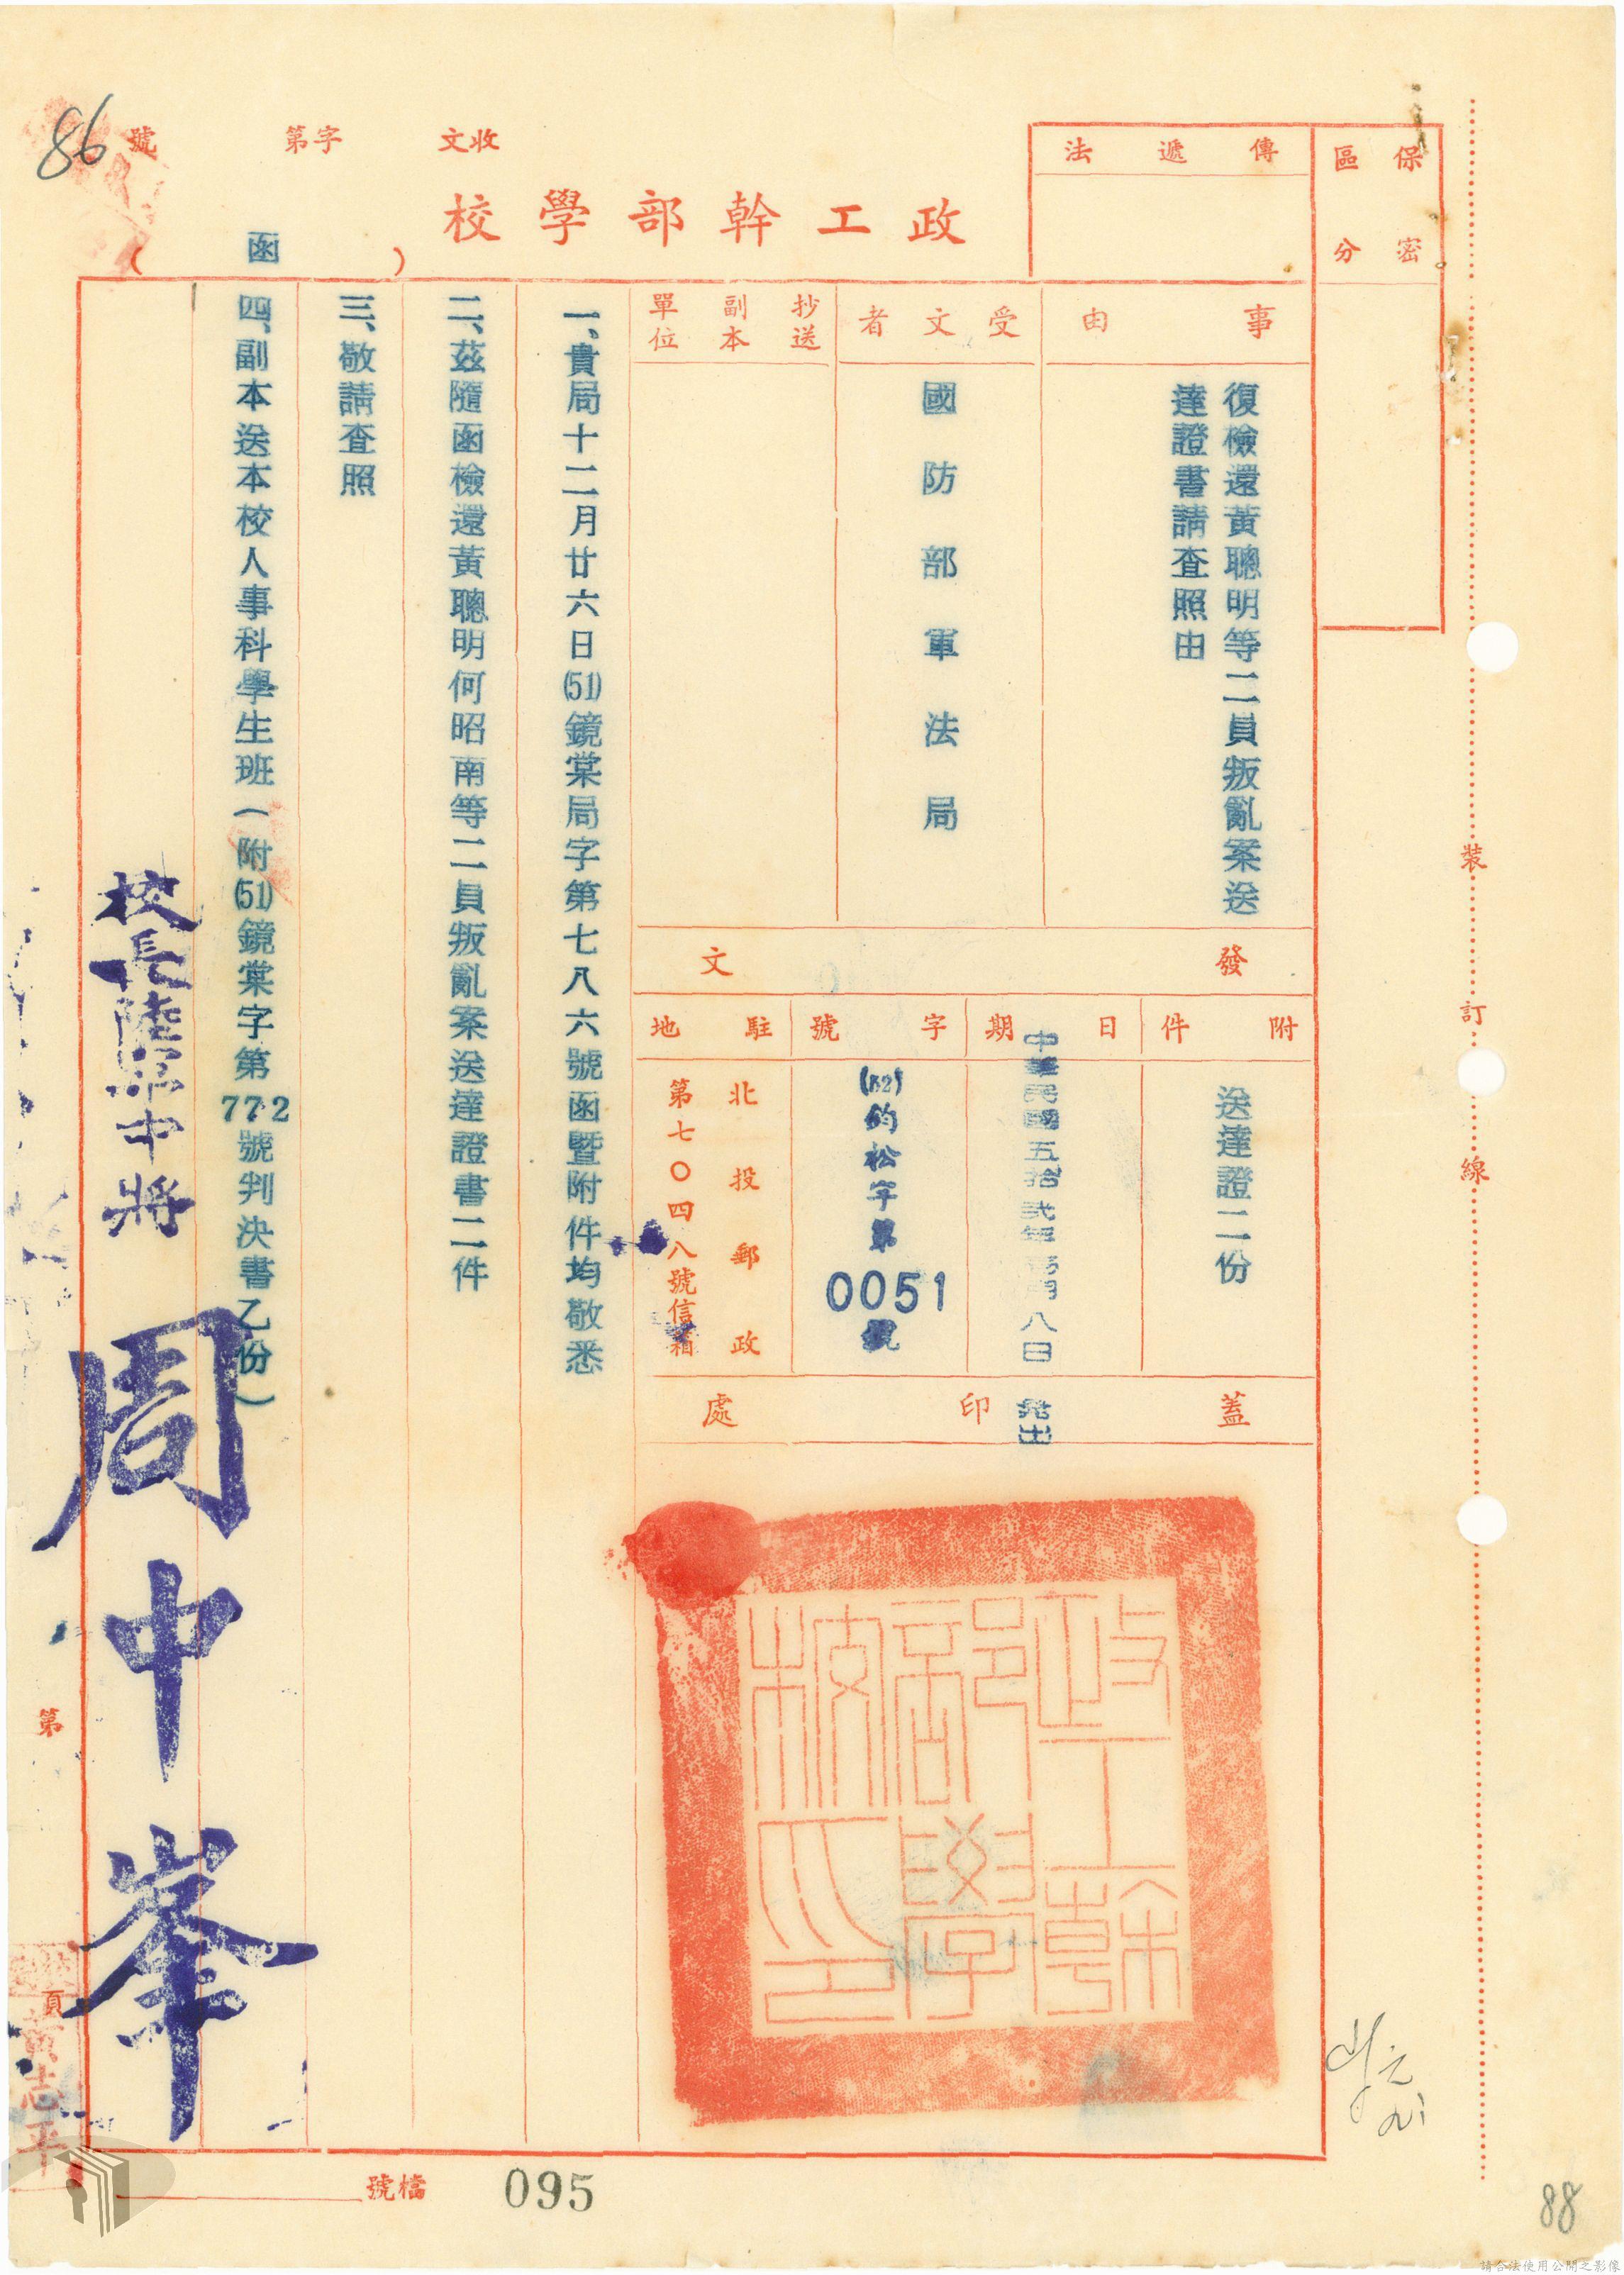 保密
區分
傳遞法
政工幹部學校
(函)
收文
字第
號
86
事由
復檢還黃聰明等二員叛亂案送
達證書請查照由
受文者
國防部軍法局
抄送
副本
單位
發文
附件
送達證二份
日期
中華民國五拾貳年元月八日
發出
字號
(52)鈞松字第
0051
號
駐地
北投郵政
第七〇四八號信箱
蓋印處
政工幹部學校印
一、貴局十二月廿六日(51)鏡棠局字第七八六號函暨附件均敬悉
二、茲隨函檢還黃聰明何昭南等二員叛亂案送達證書二件
三、敬請查照
四、副本送本校人事科學生班(附(51)鏡棠字第772號判決書乙份)
校長陸軍中將
周中峯
第
頁
黃志平
裝
訂
線
檔號
095
88
請合法使用公開之影像